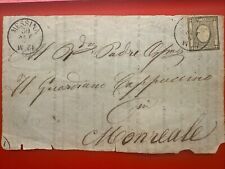 MESSINA
Al R.do Padre
Il Guardiano Cappuccino
in
Monreale